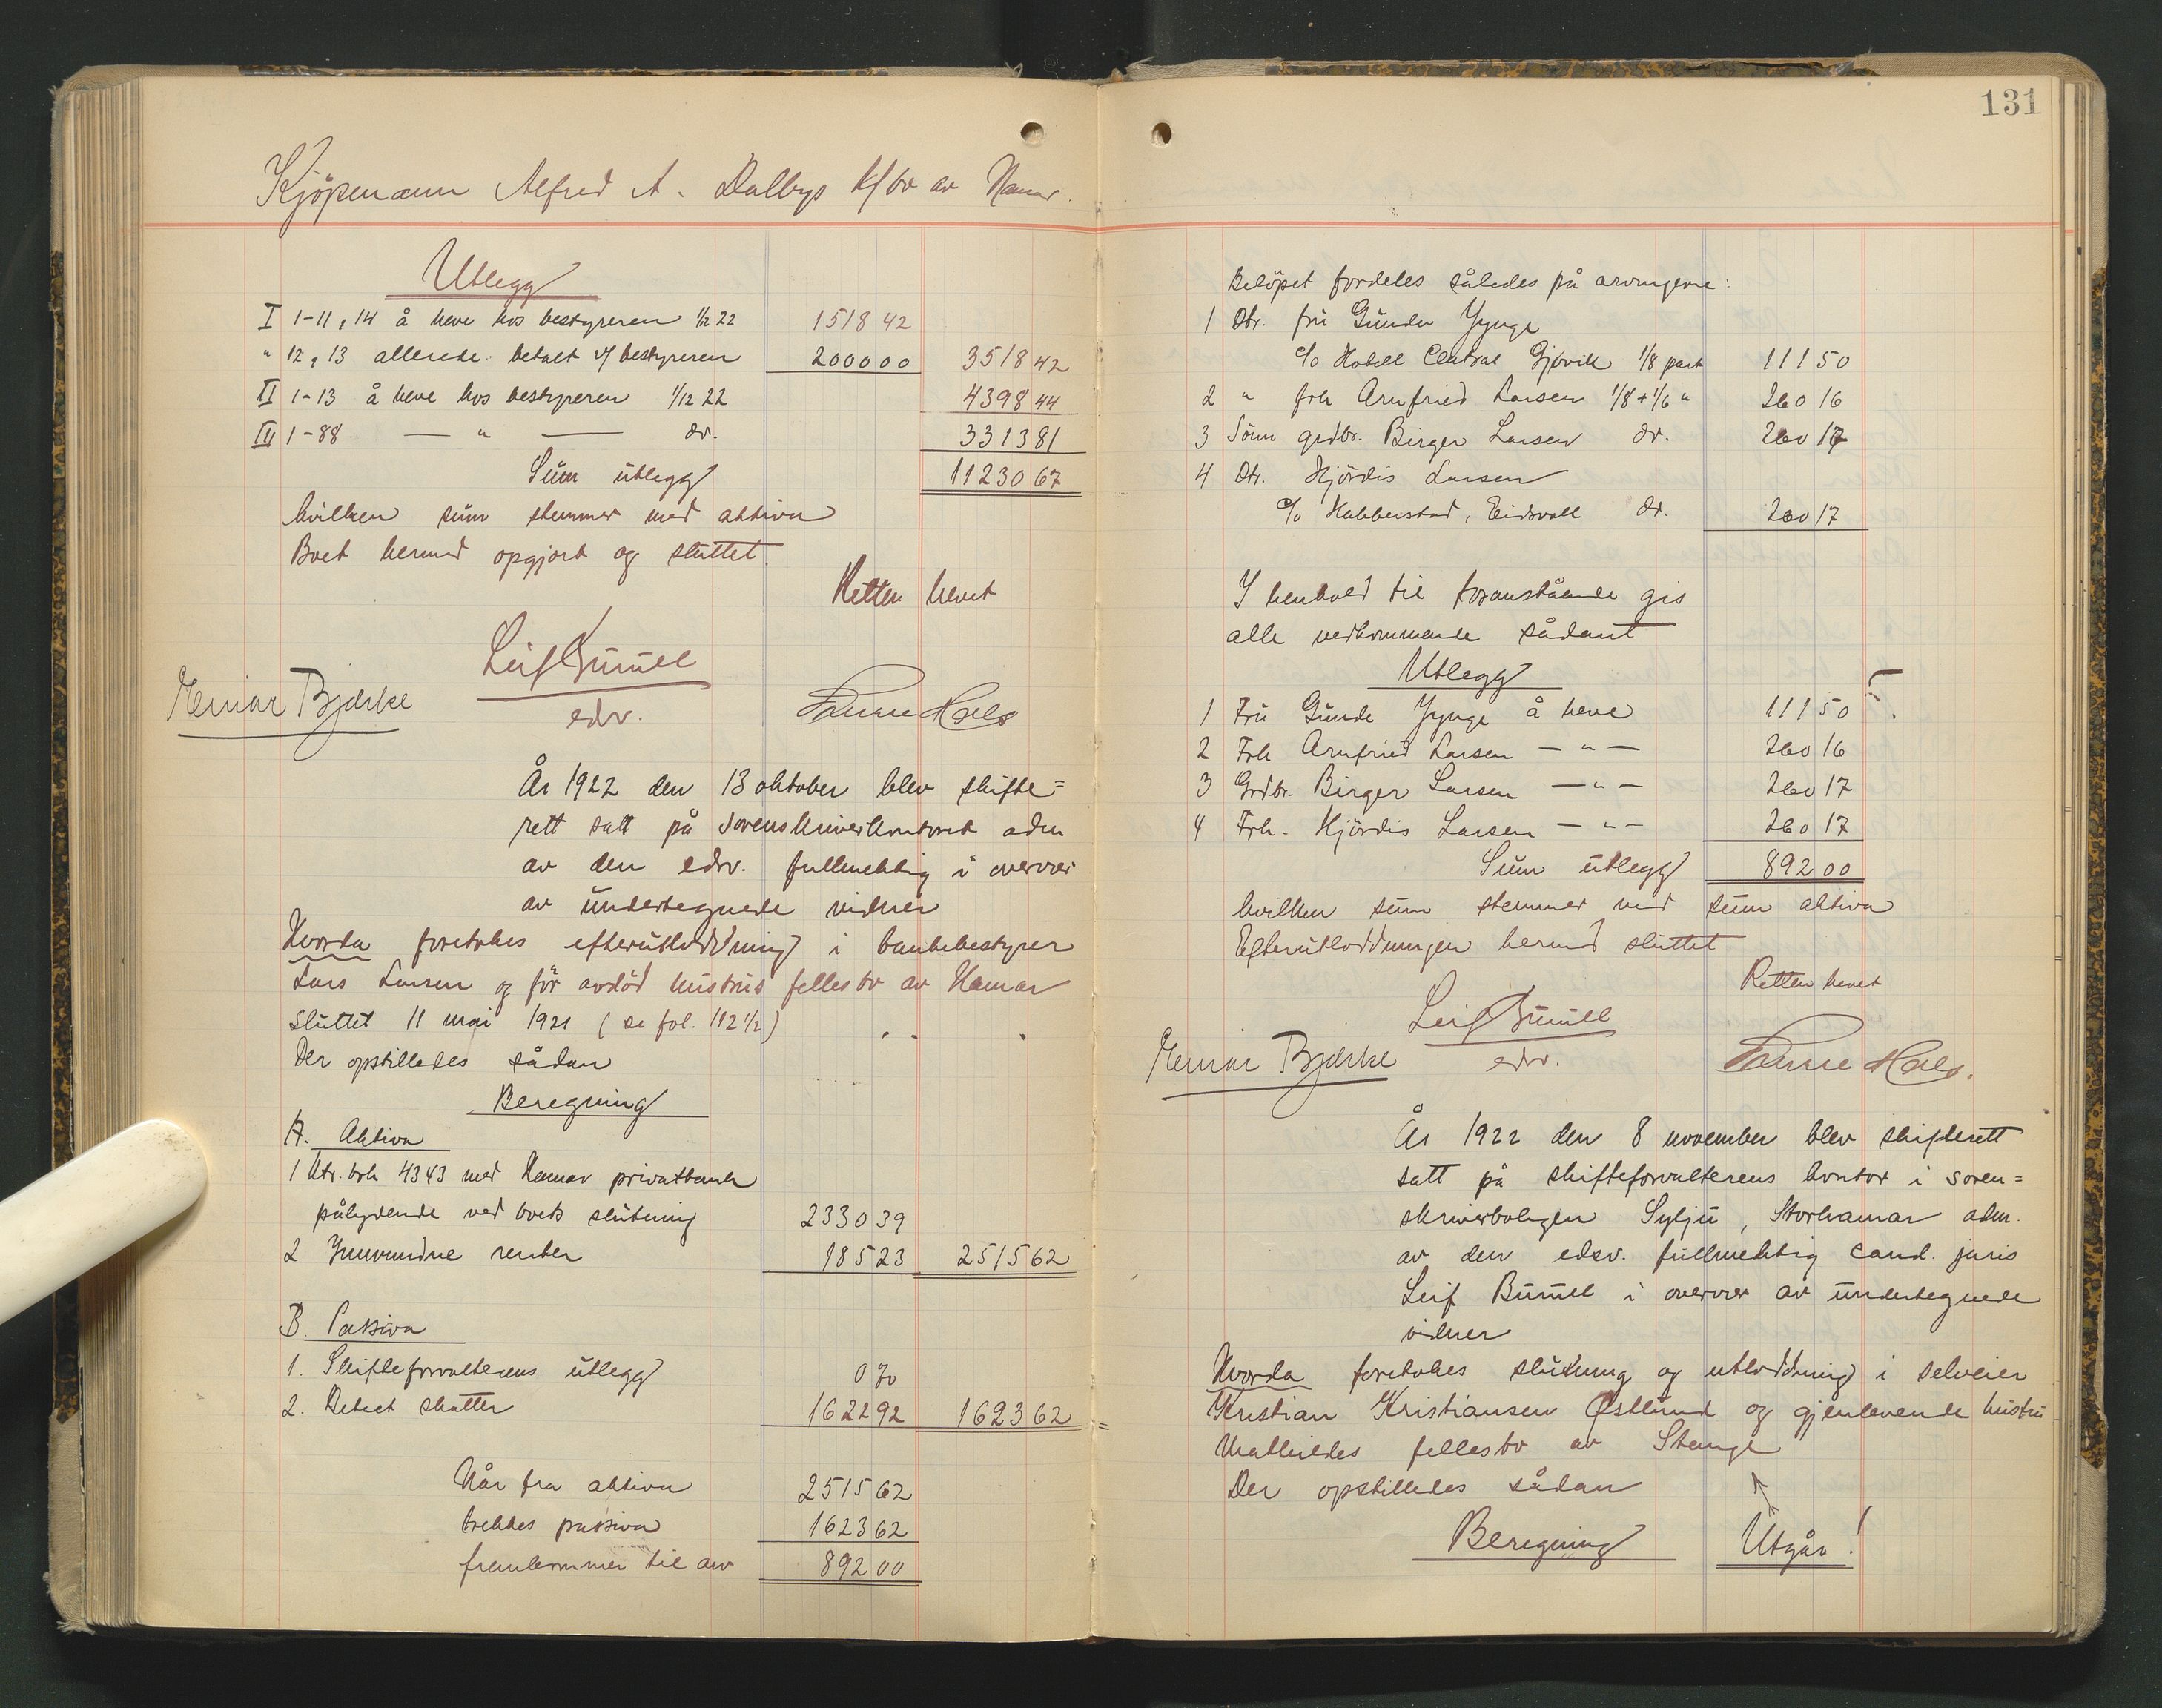 Kjøpmann Alfred A. Dalbys k/bo av Hamar.
Utlegg
I 1-11, 14 å heve hos bestyreren 1/12 22 1518 42
" 12, 13 allerede betalt v/ bestyreren 2000 00 3518 42
II 1-13 å heve hos bestyreren 1/12 22 4398 44
III 1-88 — " — do. 3313 81
Sum utlegg 11230 67
hvilken sum stemmer med aktiva
Boet hermed opgjort og sluttet.
Retten hevet
Leif Bumell
edsv.
Einar Bjerke
Hals
År 1922 den 13 oktober blev skifte=
rett satt på sorenskriverkontoret adm
av den edsv. fullmektig i overvær
av undertegnede vidner
Hvorda foretokes efterutloddning i bankbestyrer
Lars Larsen og før avdød hustrus fellesbo av Hamar
sluttet 11 mai 1921 (se fol. 112 1/2)
Der opstilledes sådan
Beregning
A. Aktiva
1 Ktr. bok 4343 med Hamar privatbank
pålydende ved boets slutning 2330 39
2 Innvundne renter 185 23 2515 62
B. Passiva
1. Skifteforvalterens utlegg 0 70
2. Betalt skatter 1622 92 1623 62 =
Når fra aktiva 2515 62
trekkes passiva 1623 62
fremkommer til arv 892 00
131
Beløpet fordeles således på arvingene:
1 Dtr. fru Gunda Jynge
c/o Hotell Central Gjøvik 1/8 part 111 50
2 " frk Arnfried Larsen 1/8 + 1/6 " 260 16
3 Sønn grdbr. Birger Larsen do. 260 17
4 Dtr. Hjördis Larsen
c/o Habberstad, Eidsvoll do. 260 17
I henhold til foranstående gis
alle vedkommende sådant
Utlegg
1 Fru Gunda Jynge å heve 111 50
2 Frk Arnfried Larsen — " — 260 16
3 Grdbr. Birger Larsen — " — 260 17
4 Frk. Hjördis Larsen — " — 260 17
Sum utlegg 892 00
hvilken sum stemmer med sum aktiva
Efterutloddningen hermed sluttet
Retten hevet
Leif Bumell
edsv.
Einar Bjerke
Hals.
År 1922 den 8 november blev skifterett
satt på skifteforvalterens kontor i soren=
skriverboligen Sylju, Storhamar adm.
av den edsv. fullmektig cand. juris
Leif Bumell i overvær av undertegnede
vidner
Hvorda foretokes slutning og utloddning i selveier
Kristian Kristiansen Østlund og gjenlevende hustru
Mathildes fellesbo av Stange
Der opstilledes sådan
Beregning Utgår!